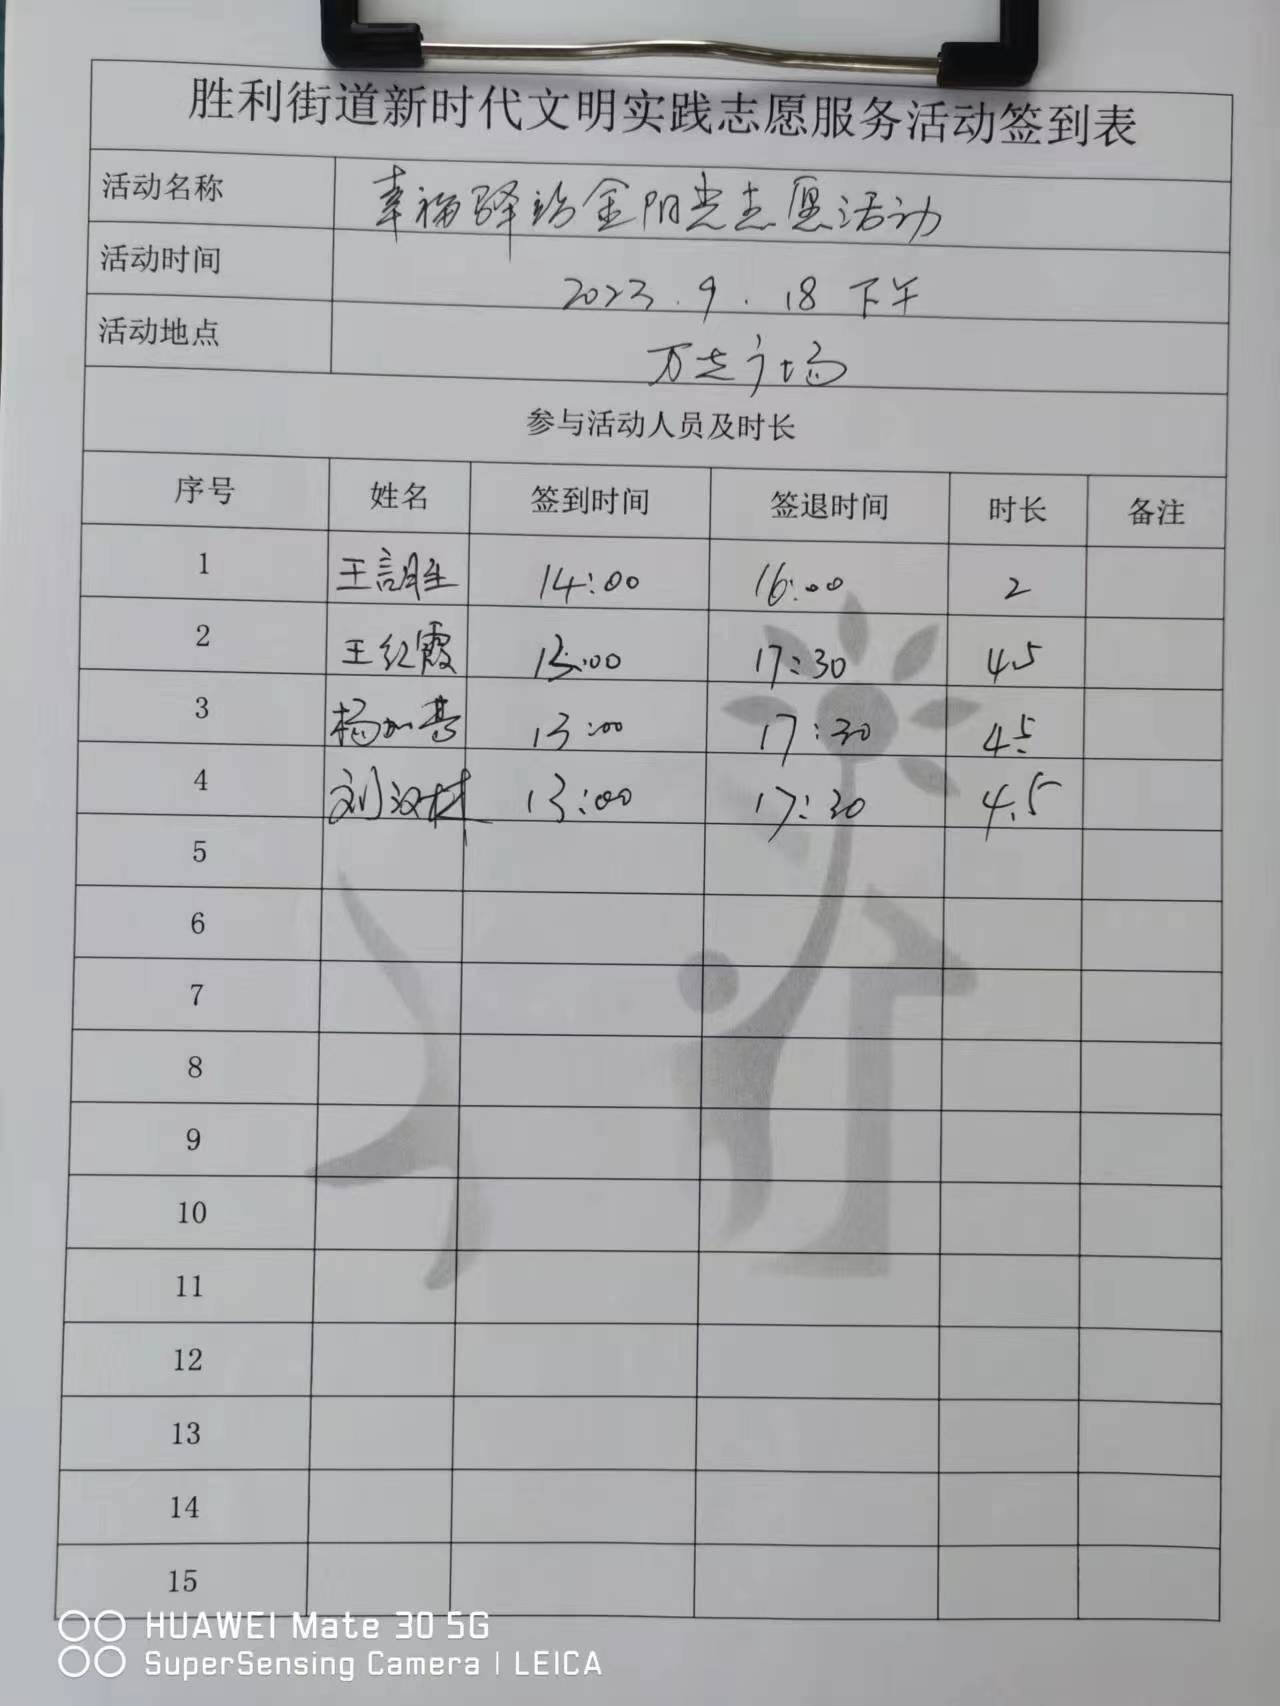 胜利街道新时代文明实践志愿服务活动签到表
活动名称 幸福驿站金阳光志愿活动
活动时间 2023.9.18 下午
活动地点 万达广场
参与活动人员及时长
序号 姓名 签到时间 签退时间 时长 备注
1 王 胜 14:00 16:00 2
2 王红霞 13:00 17:30 4.5
3 杨 13:00 17:30 4.5
4 刘汉林 13:00 17:30 4.5
5
6
7
8
9
10
11
12
13
14
15
HUAWEI Mate 30 5G
SuperSensing Camera | LEICA